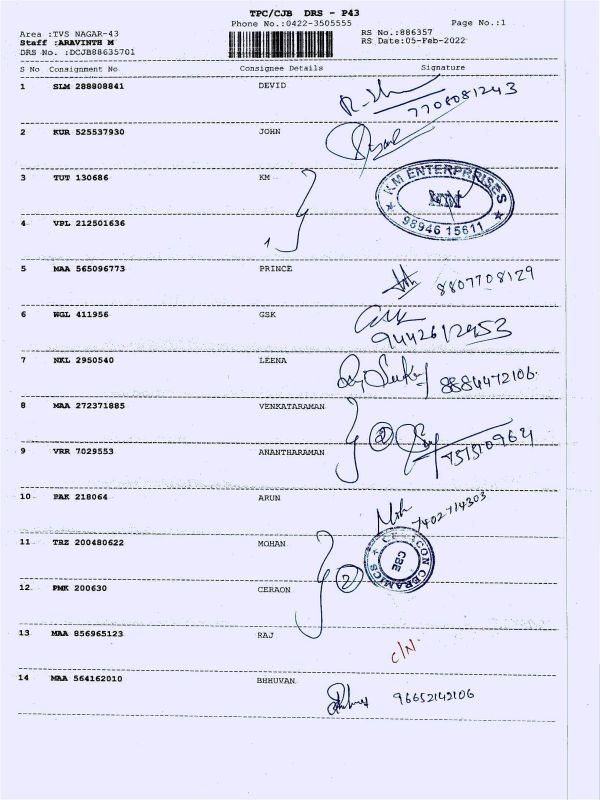 TPC/CJB DRS - P43
Phone No.:0422-3505555
Page No.:1
Area :TVS NAGAR-43
RS No.:886357
Staff :ARAVINTH M
RS Date:05-Feb-2022
DRS No. :DCJB88635701
S No Consignment No Consignee Details Signature
1 SLM 288808841 DEVID
7708081243
2 KUR 525537930 JOHN
3 TUT 130686 KM
N.M ENTERPRISES
98946 15611
4 VPL 212501636
5 MAA 565096773 PRINCE 8807708129
6 WGL 411956 GSK
9442612953
7 NKL 2950540 LEENA 8884472106
8 MAA 272371885 VENKATARAMAN
2
9 VRR 7029553 ANANTHARAMAN
10 PAK 218064 ARUN
7402714303
11 TRZ 200480622 MOHAN
CERAMICS
CBE
12 PMK 200630 CERAON
2
13 MAA 856965123 RAJ
C/N
14 MAA 564162010 BHHUVAN
96652142106